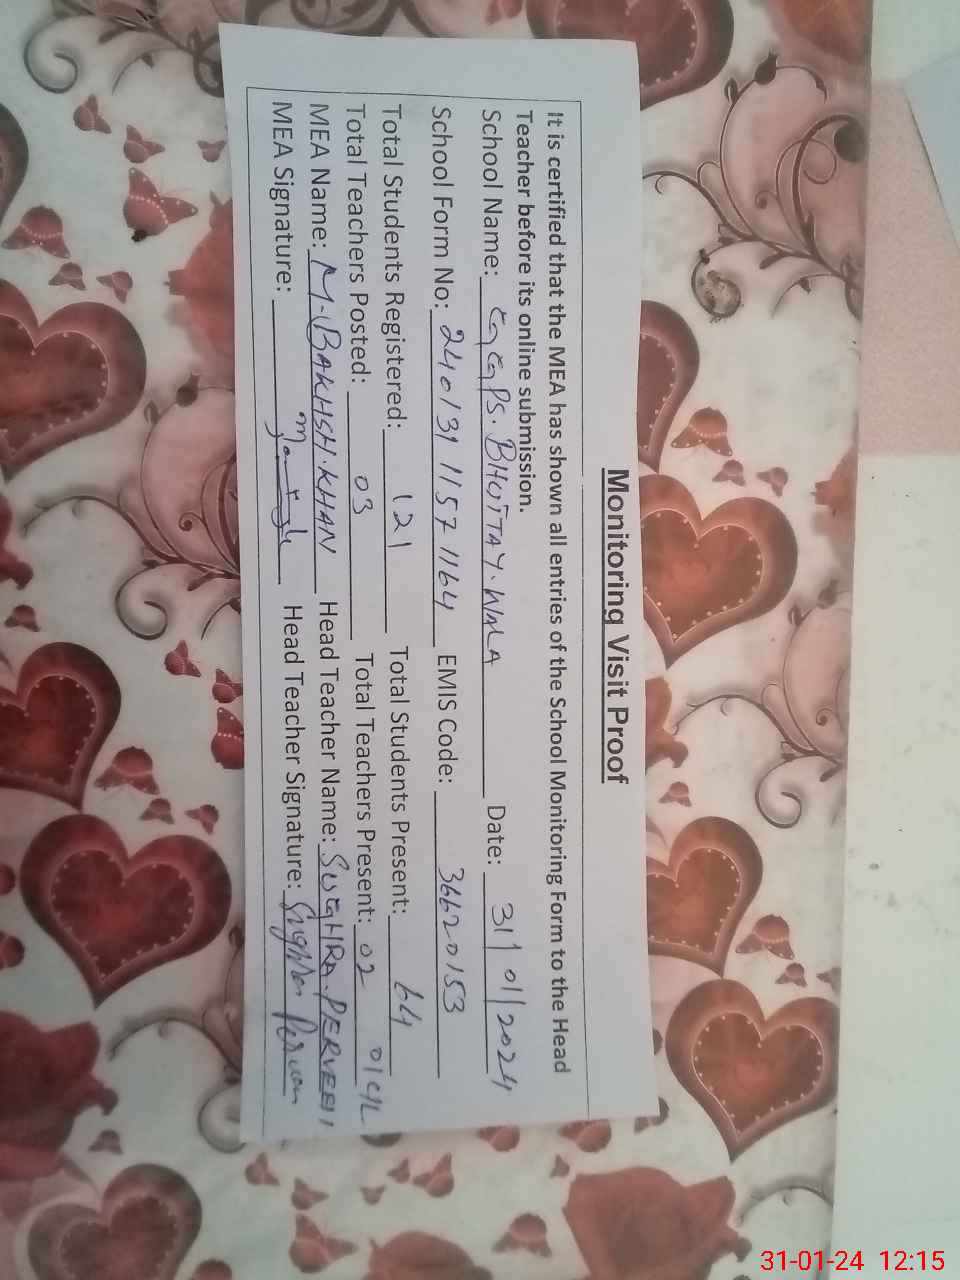 Monitoring Visit Proof
It is certified that the MEA has shown all entries of the School Monitoring Form to the Head
Teacher before its online submission.
School Name: GGPS. BHUTTAY. WALA Date: 31/01/2024
School Form No: 240131 1157 1164 EMIS Code: 36620153
Total Students Registered: 121 Total Students Present: 64
Total Teachers Posted: 03 Total Teachers Present: 02 01 C/L
MEA Name: M. BAKHSH. KHAN Head Teacher Name: SUGHRA. PERVEEN
MEA Signature: Head Teacher Signature: Sughra Perveen
31-01-24 12:15